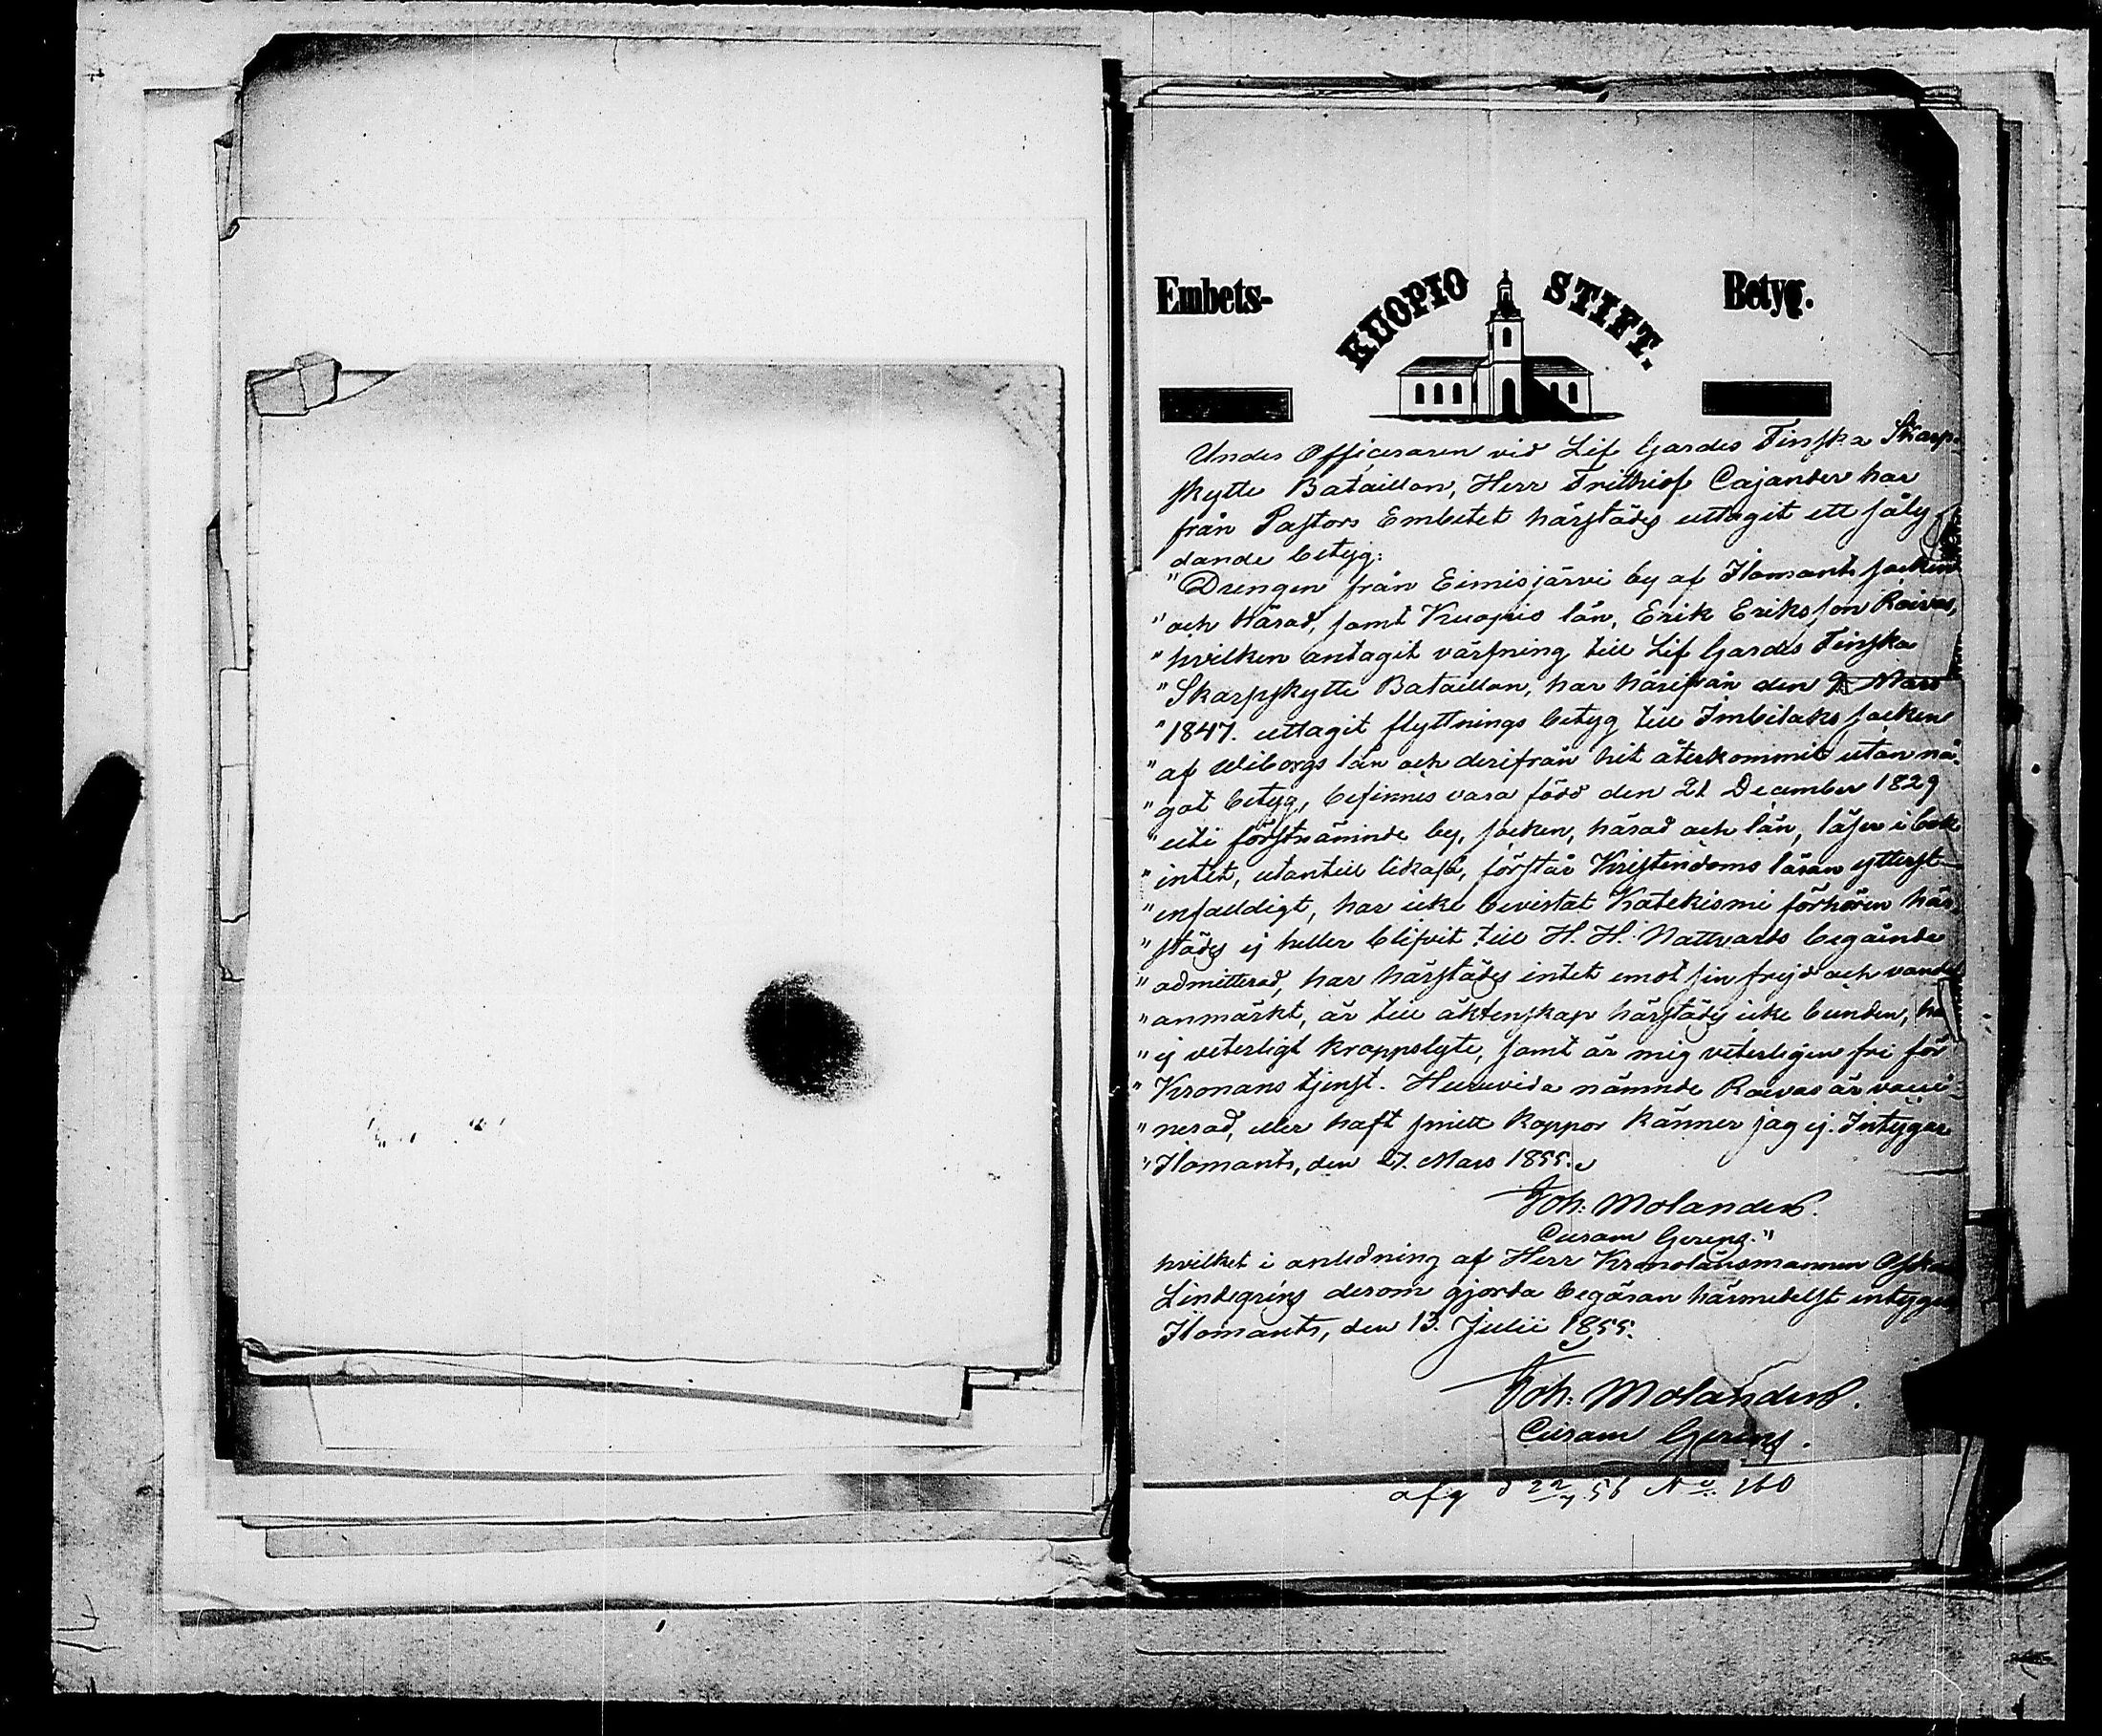 Embets-
KUOPIO STIFT.
Betyg.
Under Officeraren vid Lif Gardes Finska Skarp-
skytte Bataillon, Herr Frithiof Cajander har
från Pastors Embetet härstädes uttagit ett såly-
dande betyg:
"Drengen från Eimisjärvi by af Ilomants socken
"och härad, samt Kuopio län, Erik Eriksson Raivas,
"hvilken antagit värfning till Lif Gardes Finska
"Skarpskytte Bataillon, har härifrån den 9 Mars
"1847. uttagit flyttnings betyg till Imbilaks socken
"af Wiborgs län och derifrån hit återkommit utan nå-
"got betyg, befinnes vara född den 21 December 1829
"uti förstnämnde by, socken, härad och län, läser i bok
"intet, utantill likaså, förstår Kristendoms läran ytterst
"enfaldigt, har icke bevistat Katekismi förhören här-
"städes ej heller blifvit till H. H. Nattvards begående
"admitterad, har härstädes intet emot sin frejd och vandel
"anmärkt, är till äktenskap härstädes icke bunden, ha
"ej veterligt kroppslyte, samt är mig veterligen fri för
"Kronans tjenst. Huruvida nämnde Raivas är vacci-
"nerad, eller haft smitt koppor känner jag ej. Intygar
"Ilomants, den 27. Mars 1855.
Joh: Molander.
Curam Gerens."
hvilket i anledning af Herr Kronolänsmannen Oska
Lindegréns derom gjorda begäran härmedelst intygas
Ilomants, den 13. Julii 1855.
Joh: Molander.
Curam Gerens.
afg d 22/7 56 No 160